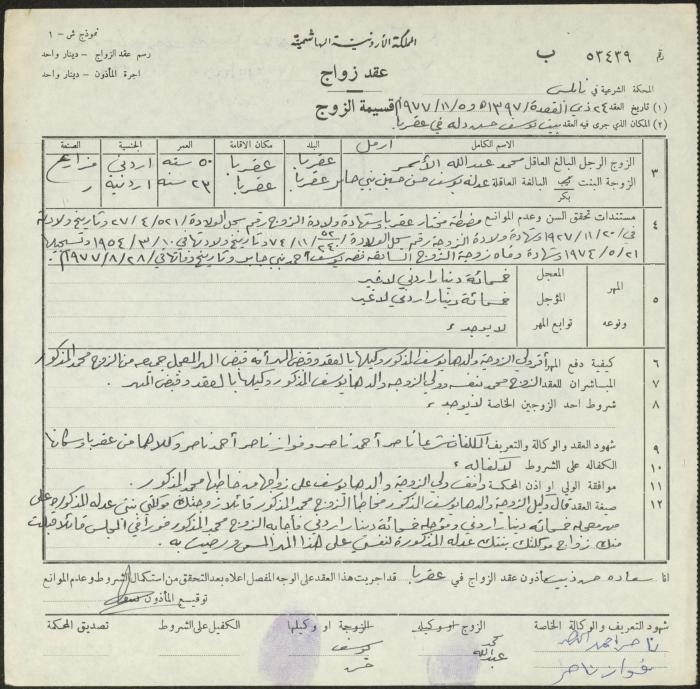 المملكة الأردنية الهاشمية
نموذج ش - ١
رسم عقد الزواج - دينار واحد
اجرة المأذون - دينار واحد
رقم ٥٣٤٣٩ ب
عقد زواج
المحكمة الشرعية في نابلس
(١) تاريخ العقد ٢٤ ذي القعدة / ١٣٩٧ هـ و ٥ / ١١ / ١٩٧٧ م قسيمة الزوج
(٢) المكان الذي جرى فيه العقد بيت يوسف حسن دله في عقربا
الاسم الكامل البلد مكان الاقامة العمر الجنسية الصنعة
٣ الزوج الرجل البالغ العاقل محمد عبدالله الأسمر ارمل عقربا عقربا ٥٠ سنه اردني مزارع
الزوجة البنت بكر البالغة العاقلة عدله يوسف حسن حسين بني جابر عقربا عقربا ٢٣ سنه اردنية
٤ مستندات تحقق السن وعدم الموانع مضبطة مختار عقربا وشهادة ولادة الزوج رقم سجل الولادة / ٥٢١ / ٤ / ٢٧ وتاريخ ولادته
في / ٢٠ / ١١ / ١٩٢٧ وشهادة ولادة الزوجة رقم سجل الولادة / ٥٢ / ٢٤٠ / ١١ / ٧٤ وتاريخ ولادتها في ١٠ / ٣ / ١٩٥٤ وتسجيلها
٢١ / ٥ / ١٩٧٤ وشهادة وفاة زوجة الزوج السابقة فضه يوسف احمد بني جابر وتاريخ وفاتها في / ٢٨ / ٨ / ١٩٧٧ م
٥ المهر ونوعه
المعجل خمسمائة دينار اردني لاغير
المؤجل خمسمائة دينار اردني لاغير
توابع المهر لا يوجد
٦ كيفية دفع المهر أقر ولي الزوجة والدها يوسف المذكور وكيلها بالعقد وقبض المهر أنه قبض المهر المعجل جميعه من الزوج محمد المذكور
٧ المباشران للعقد الزوج محمد بنفسه وولي الزوجة والدها يوسف المذكور وكيلها بالعقد وقبض المهر .
٨ شروط احد الزوجين الخاصة لا يوجد
٩ شهود العقد والوكالة والتعريف المكلفان شرعا ناصر أحمد ناصر وفواز ناصر أحمد ناصر وكلاهما من عقربا وسكانها
١٠ الكفاله على الشروط لا كفاله
١١ موافقة الولي او اذن المحكمة وافق ولي الزوجة والدها يوسف على زواجها من خاطبها محمد المذكور .
١٢ صيغة العقد قال وكيل الزوجة والدها يوسف المذكور مخاطبا الزوج محمد المذكور قائلا زوجتك موكلتي بنتي عدله المذكورة على
مهر معجله خمسمائة دينار اردني ومؤجله خمسمائة دينار اردني فأجابه الزوج محمد المذكور فورا في المجلس قائلا قبلت
منك زواج موكلتك بنتك عدله المذكورة لنفسي على هذا المهر المسمى ورضيت به .
انا سعاده حسن ذيب مأذون عقد الزواج في عقربا قد اجريت هذا العقد على الوجه المفصل اعلاه بعد التحقق من استكمال الشروط وعدم الموانع
توقيع المأذون
شهود التعريف والوكالة الخاصة الزوج او وكيله الزوجة او وكيلها الكفيل على الشروط تصديق المحكمة
ناصر احمد
فواز ناصر
محمد عبدالله
يوسف حسن